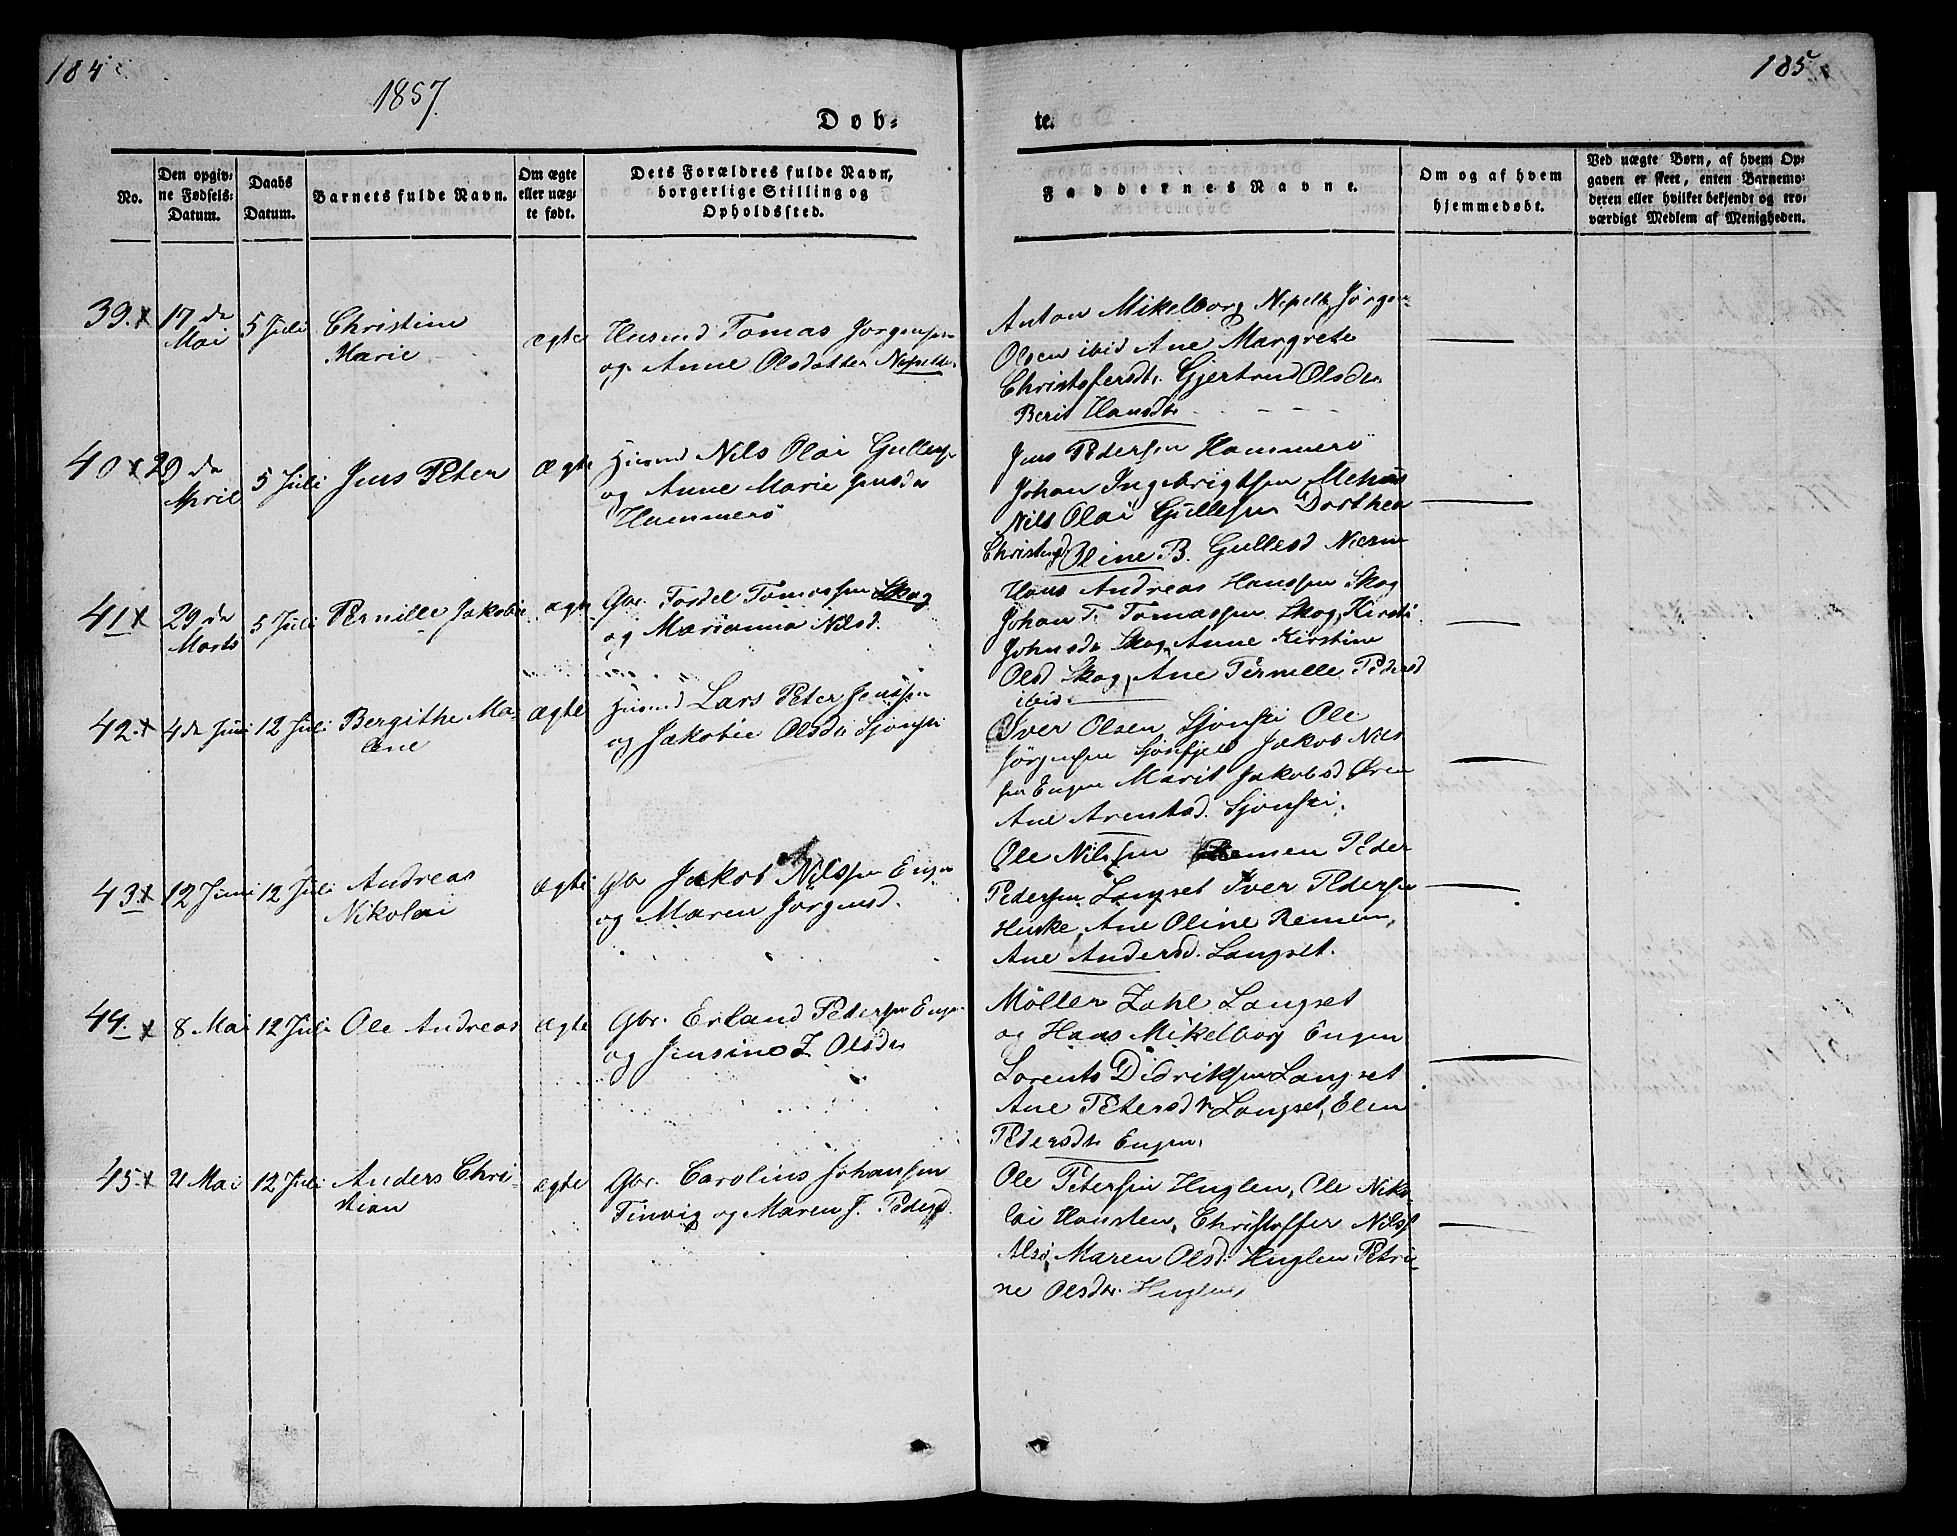 184
185
1857.
Døb-
te.
No.
Den opgiv-
ne Fødsels-
Datum.
Daabs
Datum.
Barnets fulde Navn.
Om ægte
eller uæg-
te født.
Dets Forældres fulde Navn,
borgerlige Stilling og
Opholdssted.
Faddernes Navne.
Om og af hvem
hjemmedøbt.
Ved uægte Børn, af hvem Op-
gaven er skeet, enten Barnemo-
deren eller hvilket bekjendt og tro-
værdigt Medlem af Menigheden.
39. x 17 de
Mai
5 Juli
Christine
Marie
ægte
Husmd Tomas Jørgensen
og Anne Olsdatter
Anton Mikelborg Jørgen
Olsen ibid Ane Margrete
Christofersdtr. Gjertrud Olsdr.
Berit Hansdtr
40 x 29 de
April
5 Juli
Jens Peter
Ægte
Husmd Nils Olai Gullesen
og Anne Marie Jensdr
Hammerö
Jens Pedersen Hammerö
Johan Ingebrigtsen
Nils Olai Gullesen Dorthea
Christensd Oline B. Gullesd
41 x 29 de
Marts
5 Juli
Pernille Jakobie
ægte
Gbr. Tordel Tomassen Skog
og Marianna Nilsd.
Hans Andreas Hanssen Skog
Johan T. Tomassen Skog, Kirsti
Johnsdr Skog, Anne Kirstine
Olsd Skog, Ane Pernille Pedersd
ibid.
42. x 4de Juni
12 Juli
Bergithe Ma-
lene
Ægte
Husmd Lars Peter Jenssen
og Jakobie Olsdr
Iver Olsen Ole
Jörgensen Sjonfjel Jakob Nils
sen Engen Marit Jakobsd Øren
Ane Arentsd.
43 x 12 Juni
12 Juli
Andreas
Nikolai
Ægte
Gbr Jakob Nilssen Engen
og Maren Jorgensd.
Ole Nilssen Remen Peder
Pedersen Langset Iver Pedersen
Huske, Ane Oline Remen,
Ane Andersd. Langset.
44. x 8 Mai
12 Juli
Ole Andreas
Ægte
Gbr. Erland Pedersen Engen
og Jensine Z Olsdr
Möller Zahl Langset
og Hans Mikelborg Engen
Lorents Didriksen Langset
Ane Petersdr Langset, Elen
Pedersdtr Engen.
45. x 21 Mai
12 Juli
Anders Chri-
stian
ægte
Gbr. Carolius Johansen
Finvig og Maren J. Pedersd.
Ole Petersen Huglen, Ole Niko-
lai Hansten, Christoffer Nilss
Alsö, Maren Olsd. Huglen Petri-
ne Olsdtr. Huglen